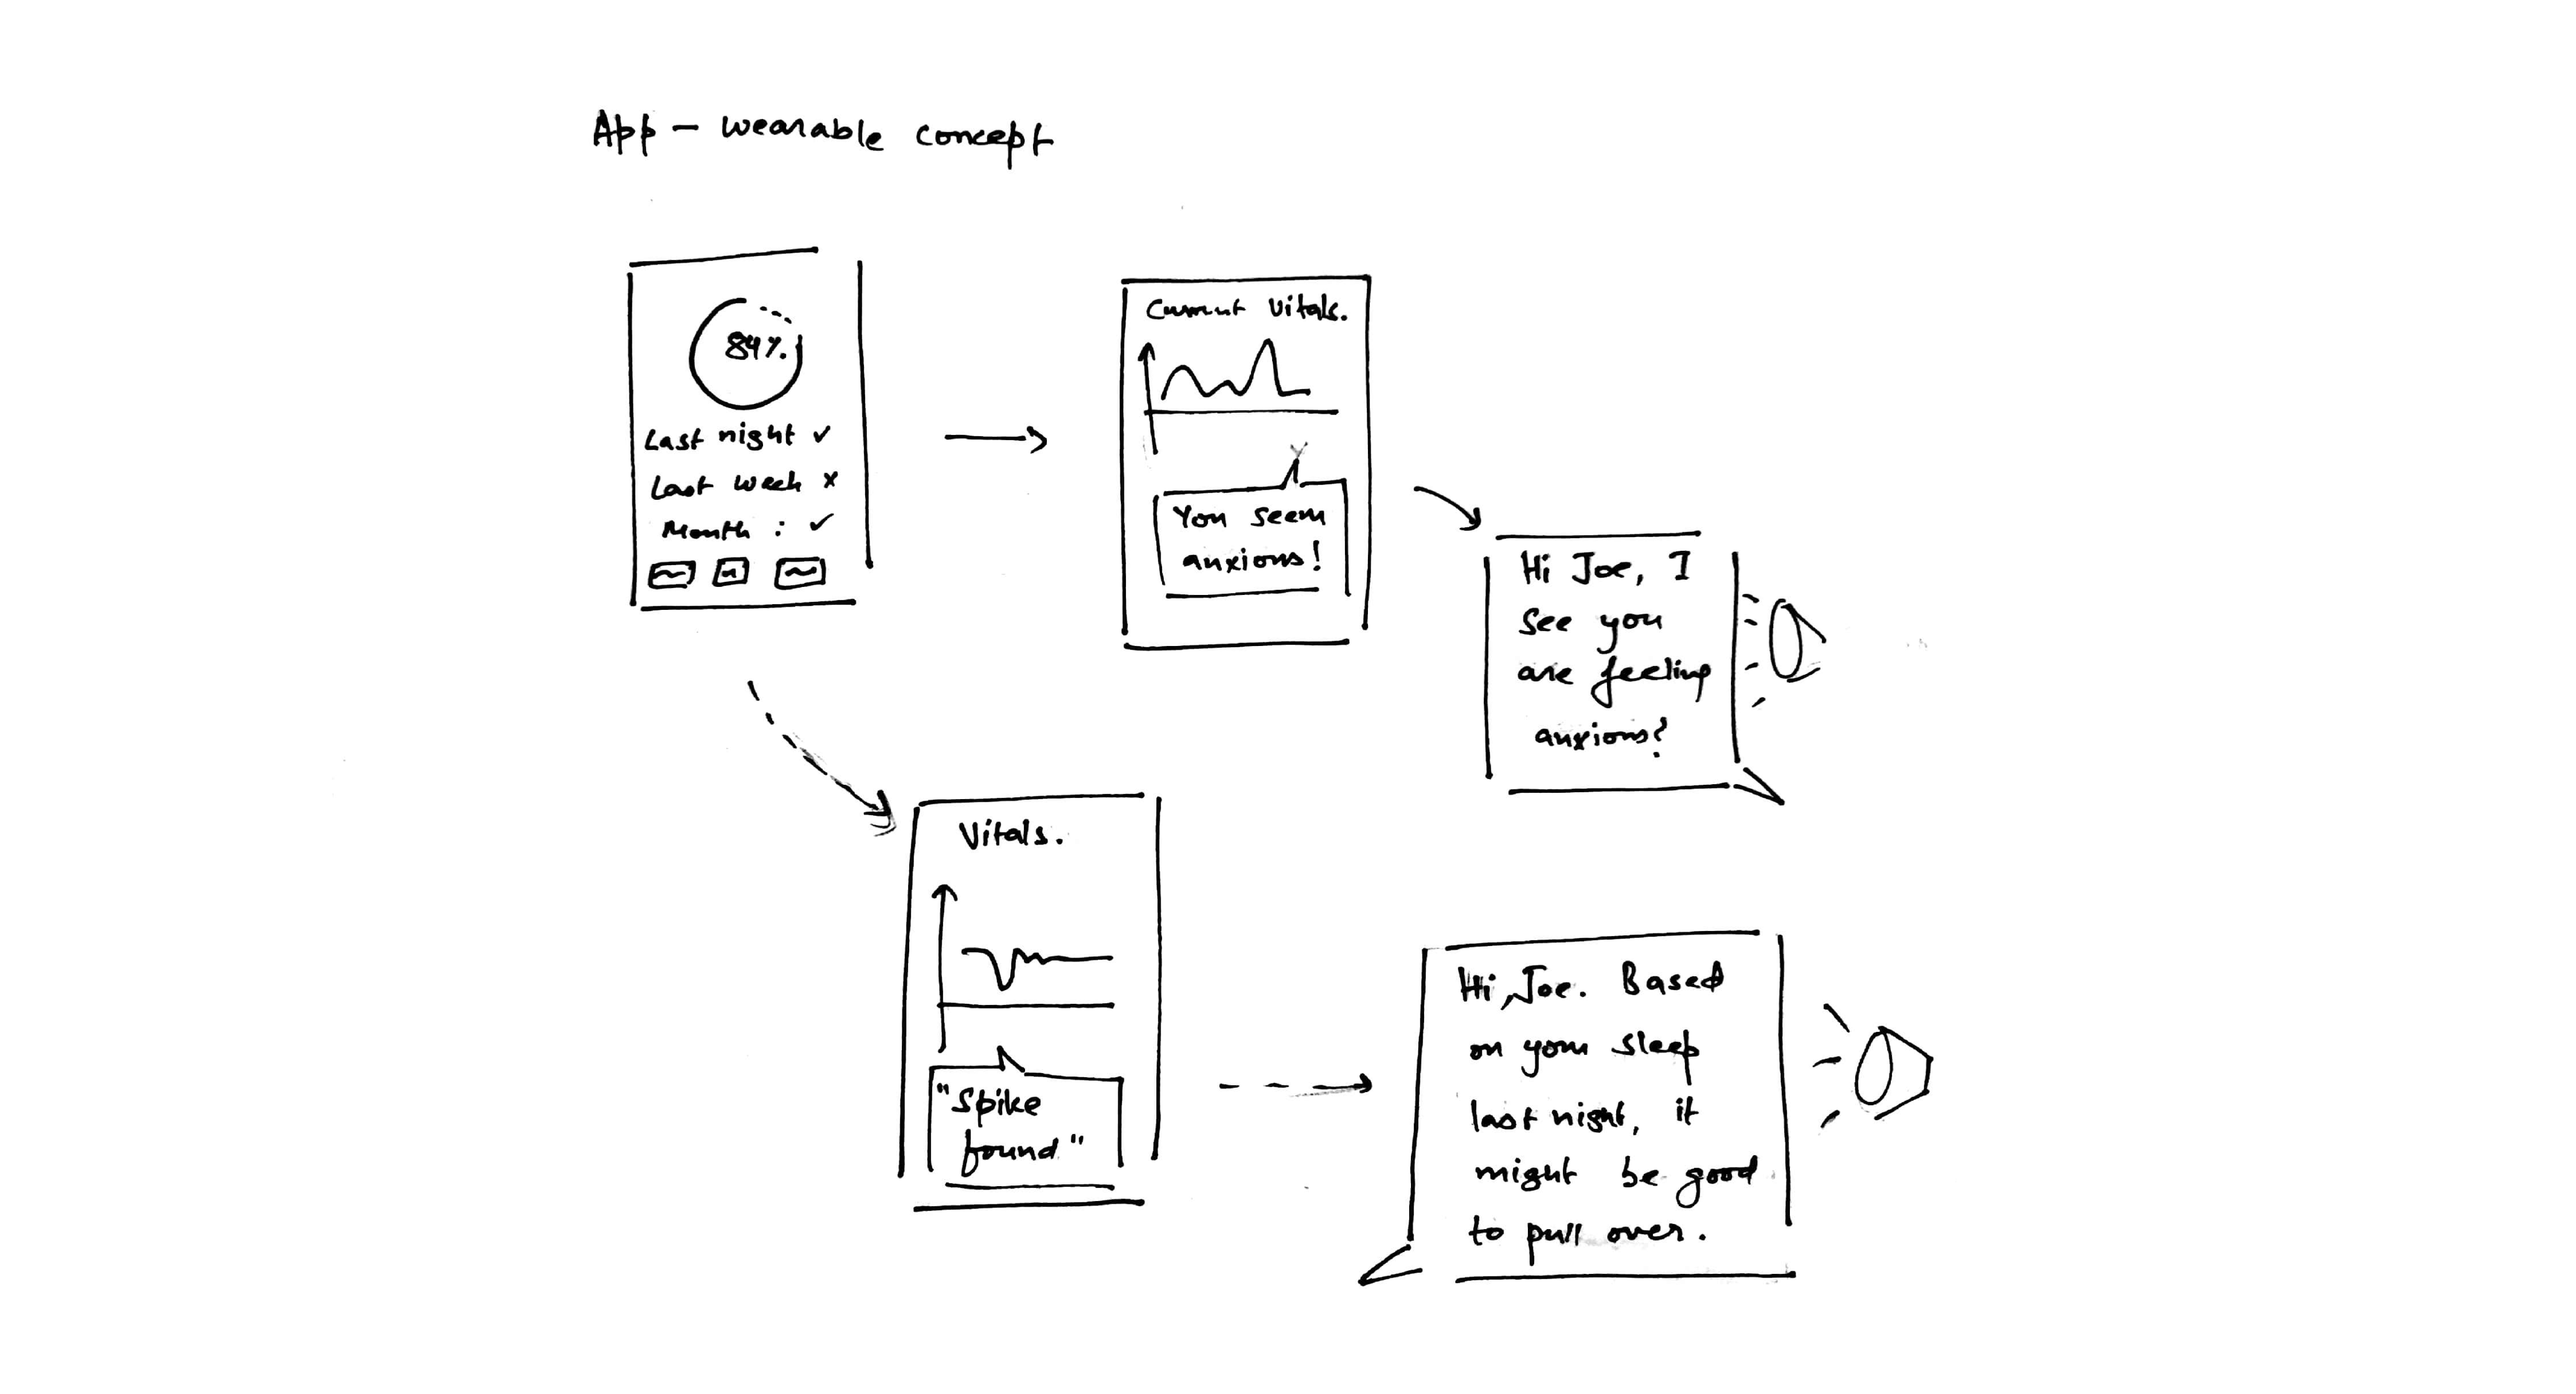 App - wearable concept
84%.
Last night ✓
Last week x
Month : ✓
Current Vitals.
You seem
anxious!
Hi Joe, I
see you
are feeling
anxious?
Vitals.
"Spike
found"
Hi, Joe. Based
on your sleep
last night, it
might be good
to pull over.